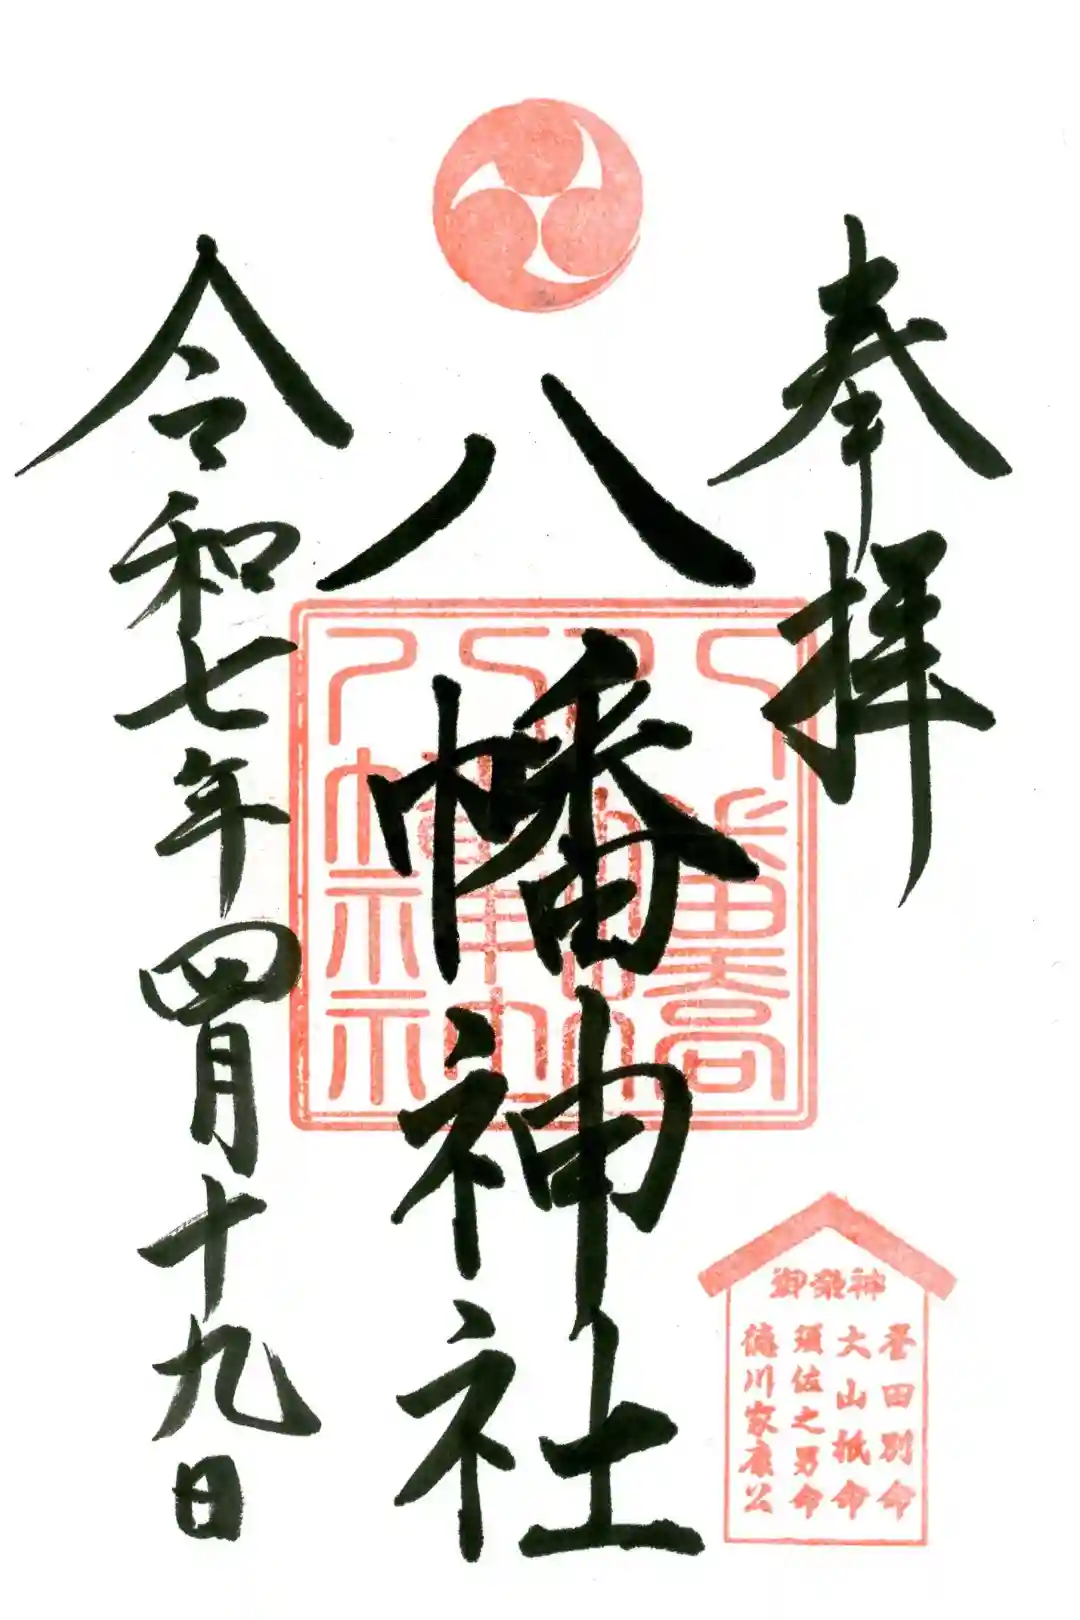 奉拝
八幡神社
令和七年四月十九日
御祭神
誉田別命
大山抵命
須佐之男命
徳川家康公